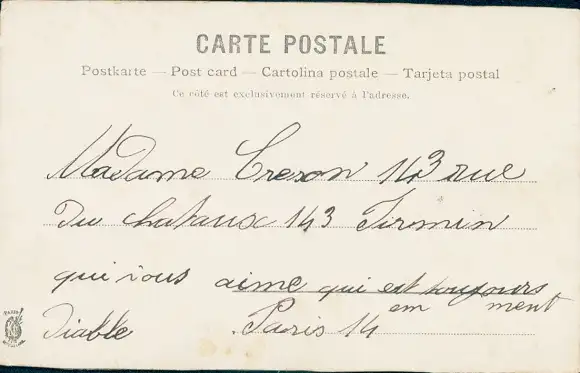 CARTE POSTALE
Postkarte — Post card — Cartolina postale — Tarjeta postal
Ce côté est exclusivement réservé à l'adresse.
Madame Creson 143 rue
Du chataux 143 Firmin
qui vous aime qui est toujours
em ment
Diable Paris 14
PARIS